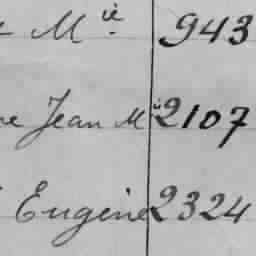 Mie 943
Jean Mie 2107
Eugène 2324